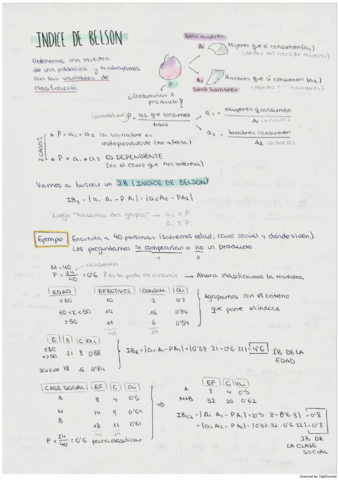 INDICE DE BELSON
Total mujeres
Obtenemos una muestra
de una población y trabajamos
con las variables de
clasificación
A₁
Mujeres que sí consumen (a₁)
(dentro del total de mujeres)
A₂
Hombres que sí consumen (a₂)
Total hombres
P
¿Consumirían x
producto?
P = los que consumen / total
a₁ = mujeres q consumen / A₁ (totales)
a₂ = hombres consumen / A₂ (totales)
2 CASOS
* P = a₁ = a₂ la variable es
independiente (no afecta)
* P ≠ a₁ ≠ a₂ ES DEPENDIENTE
(es el caso que nos interesa)
Vamos a buscar un IB (INDICE DE BELSON)
IB₂ = |a₁A₁ - PA₁| = |a₂A₂ - PA₂|
Luego "hacemos dos grupos": a₁ ≥ P
a₂ ≤ P
Ejemplo Encuesta a 40 personas (sabemos edad, clase social y dónde viven).
Les preguntamos si comprarían o no un producto.
M = 40
P = 24/40 = 0'6 P es la parte de consumir → Ahora clasificamos la muestra
EDAD EFECTIVOS CONSUM. a₁
≤30 10 2 0'2
30<E≤50 19 16 0'84
>50 11 6 0'54
40 24
Agrupamos con el criterio
que pone el índice
E E C a₁
≤30
>50 21 8 0'38
30<E≤50 19 16 0'84
IB_E = |a₁A₁ - PA₁| = |0'38·21 - 0'6·21| = 4'6
IB DE LA
EDAD
CLASE SOCIAL EF C a₁
A 8 4 0'5
M 14 9 0'64
B 18 11 0'61
40 24
P = 24/40 = 0'6
EF C a₁
A 8 4 0'5
M+B 32 20 0'62
IB_CS = |a₁A₁ - PA₁| = |0'5·8 - 8·0'6| = 0'8
= |a₂A₂ - PA₂| = |0'62·32 - 0'6·32| = 0'8
IB DE
LA CLASE
SOCIAL